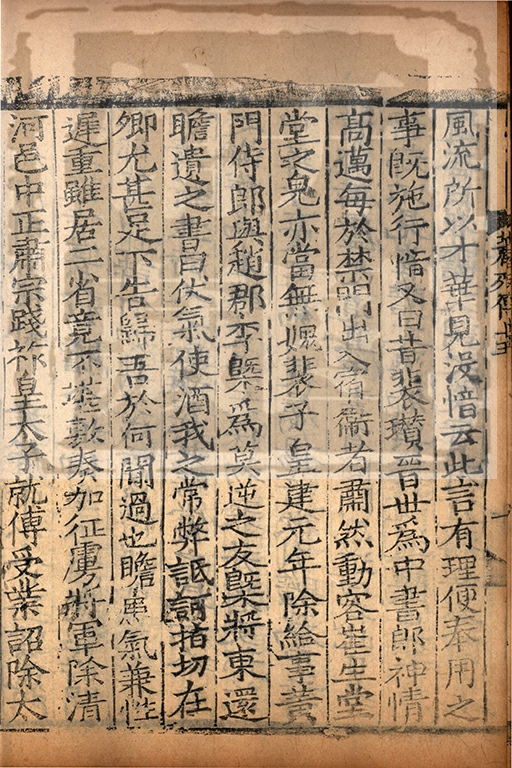 風流所以才華見沒愔云此言有理便奉用之
事既施行愔又曰昔裴瓚晉世爲中書郎神情
高邁每於禁門出入宿衞者肅然動容崔生堂
堂之皃亦當無媿裴子皇建元年除給事黃
門侍郎與趙郡李槩爲莫逆之友槩將東還
瞻遺之書曰仗氣使酒我之常弊詆訶指切在
卿尤甚足下告歸吾於何聞過也瞻患氣兼性
遲重雖居二省竟不堪敷奏加征虜將軍除清
河邑中正肅宗踐祚皇太子就傅受業詔除太